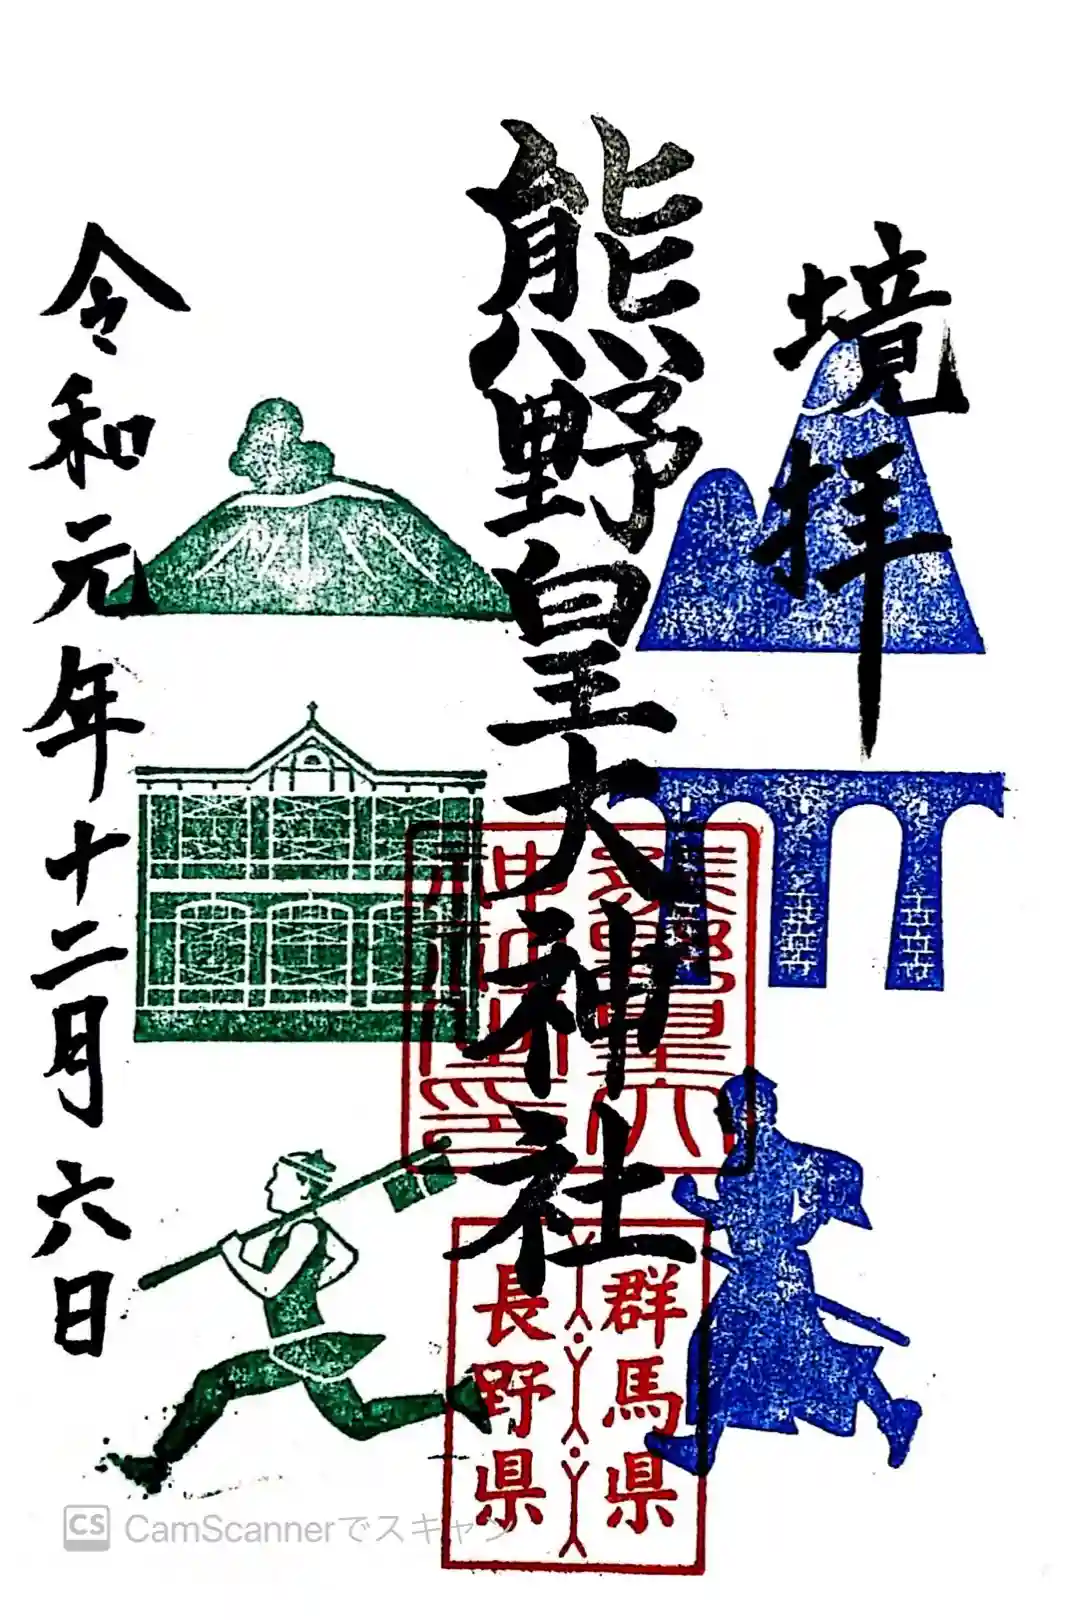 境拝
熊野皇大神社
令和元年十二月六日
群馬県
長野県
CS CamScannerでスキャン